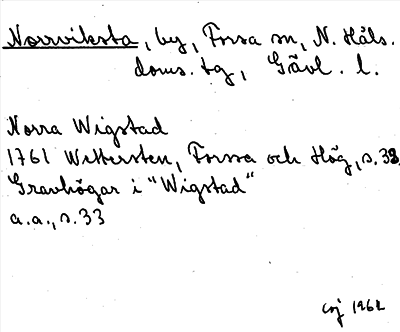 Norrviksta, by, Forsa sn, N. Häls.
doms. tg, Gävl. l.
Norra Wigstad
1761 Wettersten, Forssa och Hög, s. 33
Gravhögar i "Wigstad"
a.a., s. 33
1962